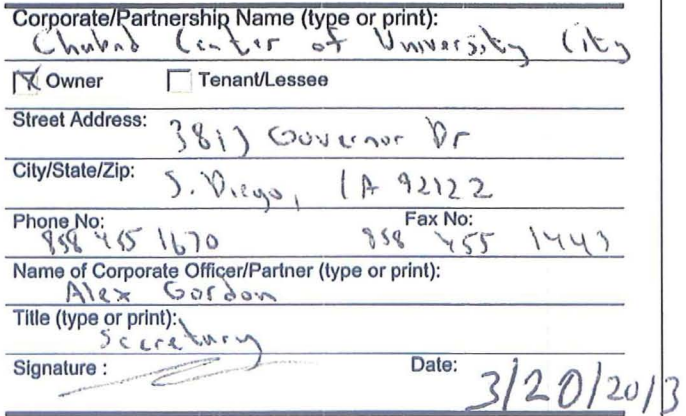 Corporate/Partnership Name (type or print):
Chabad Center of University City
Owner Tenant/Lessee
Street Address: 3813 Governor Dr
City/State/Zip: S. Diego, CA 92122
Phone No: Fax No:
858 455 1670 858 455 1443
Name of Corporate Officer/Partner (type or print):
Alex Gordon
Title (type or print):
Secretary
Signature : Date: 3/20/2013